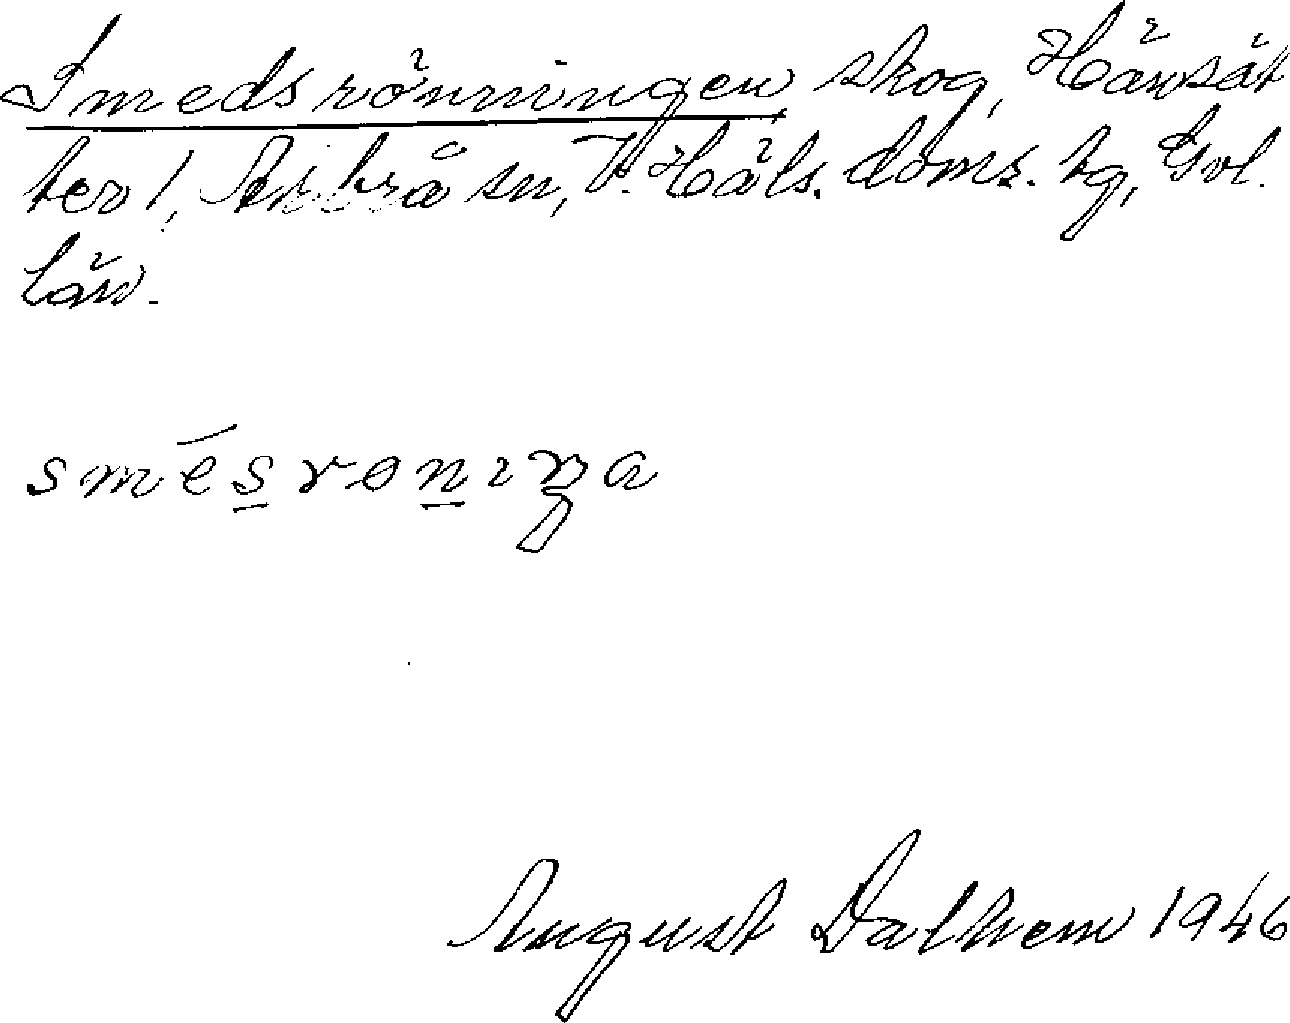 Smedsrönningen skog, Hänsät
ter 1, Arbrå sn, V. Häls. doms. tg, Gvl.
län.
smēsrɵnıŋa
August Dalhem 1946